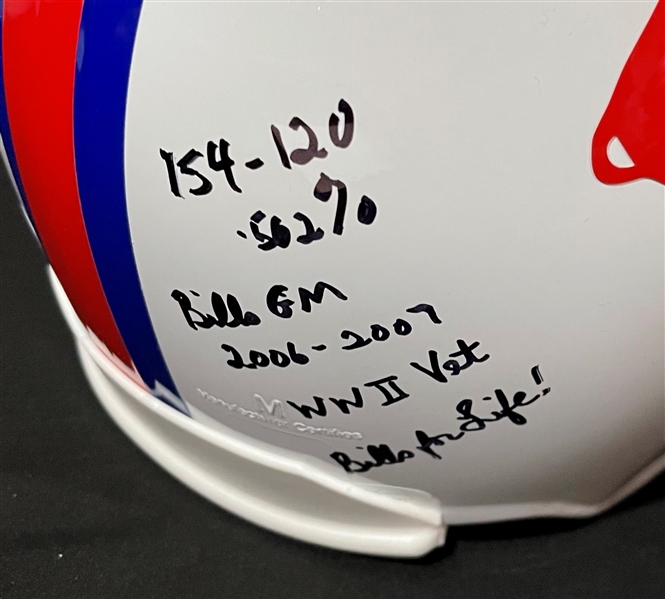 154-120
.562%
Bills GM
2006-2007
WW II Vet
Bills for Life!